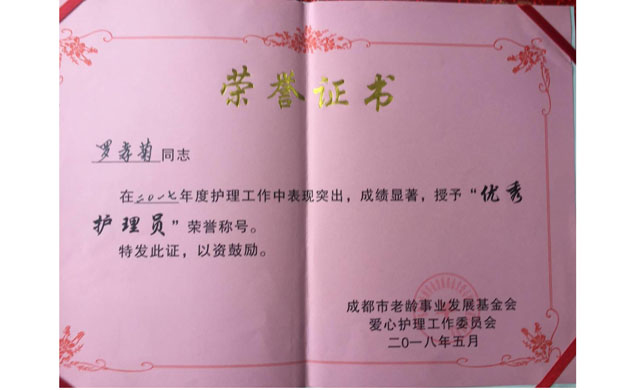 荣誉证书
罗孝菊同志
在二〇一七年度护理工作中表现突出，成绩显著，授予“优秀
护理员”荣誉称号。
特发此证，以资鼓励。
成都市老龄事业发展基金会
爱心护理工作委员会
二〇一八年五月